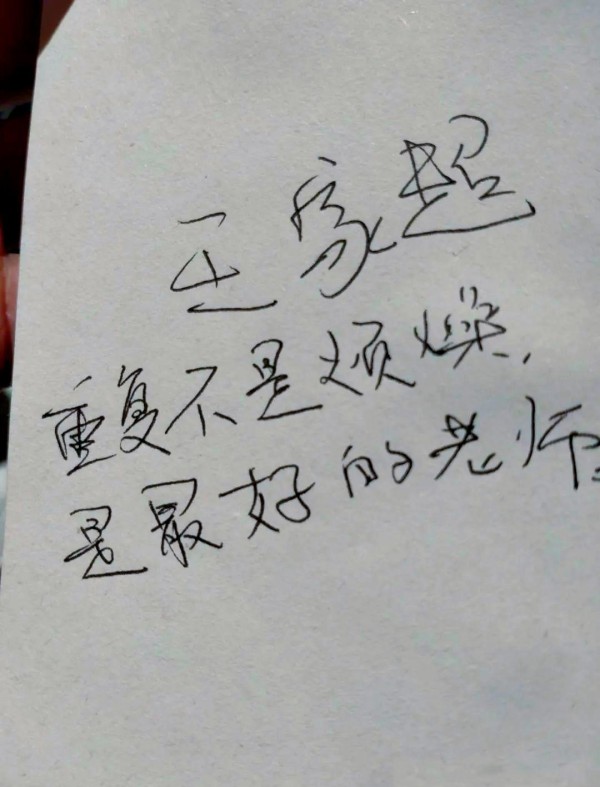 王家超
重复不是烦燥,
是最好的老师。